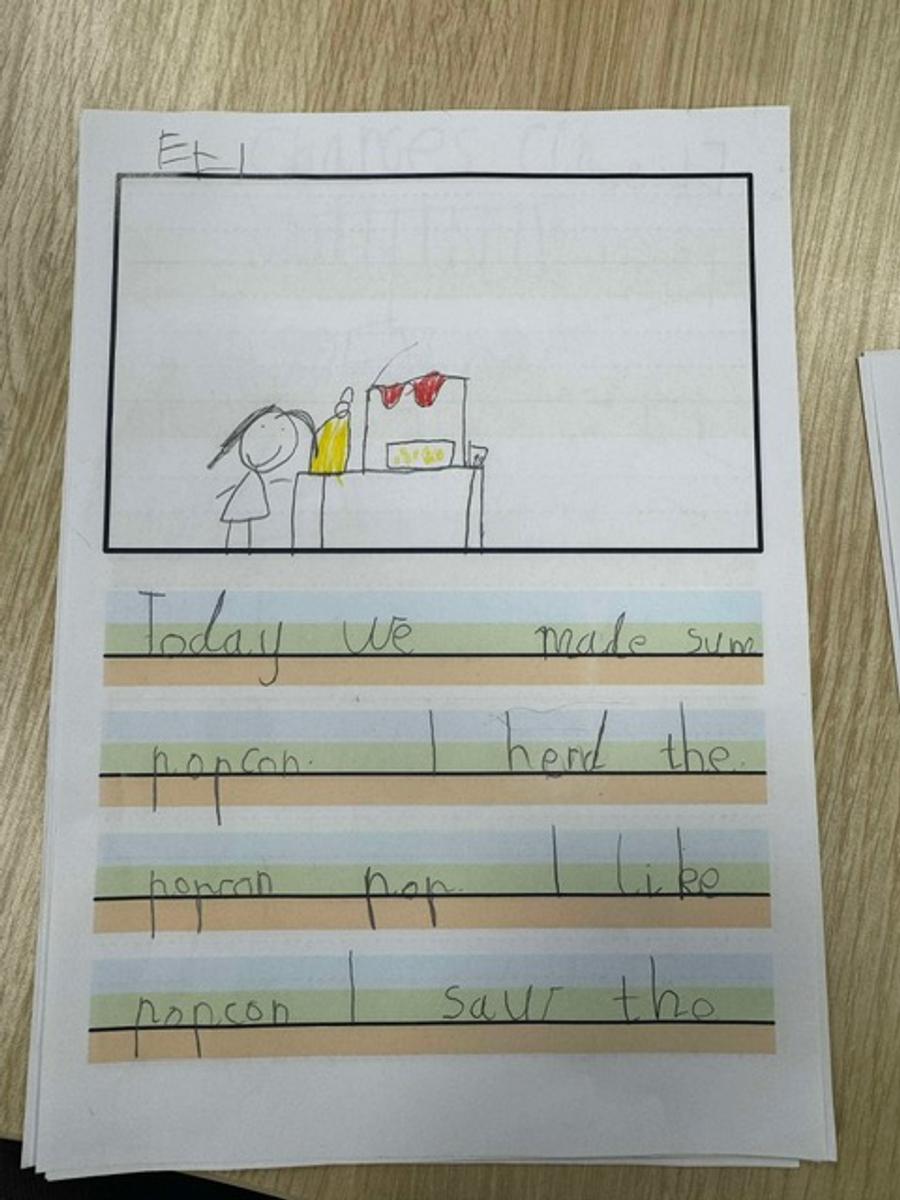 Today we made sum
popcon. I herd the
popcon pop. I like
popcon I saur the